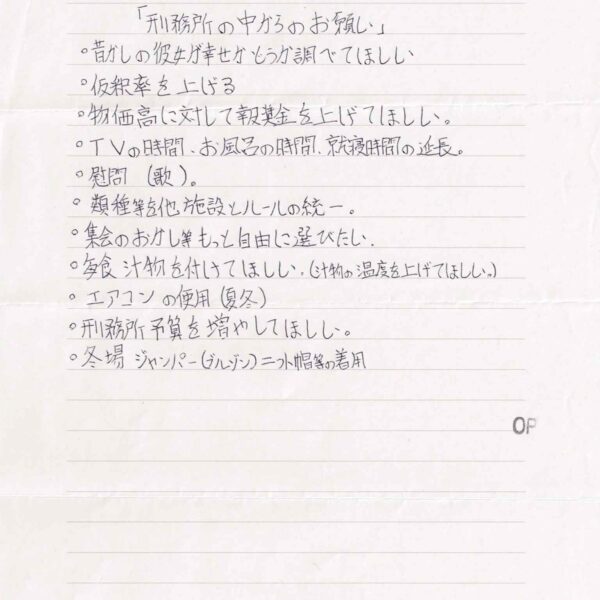 「刑務所の中からのお願い」
○昔かしの彼女が幸せかどうか調べてほしい
○仮釈率を上げる
○物価高に対して報奨金を上げてほしい。
○TVの時間、お風呂の時間、就寝時間の延長。
○慰問(歌)。
○類種等を他施設とルールの統一。
○集会のおかし等もっと自由に選びたい.
○毎食汁物を付けてほしい.(汁物の温度を上げてほしい。)
○エアコンの使用(夏冬)
○刑務所予算を増やしてほしい。
○冬場ジャンパー(ブルゾン)ニット帽等の着用
OP